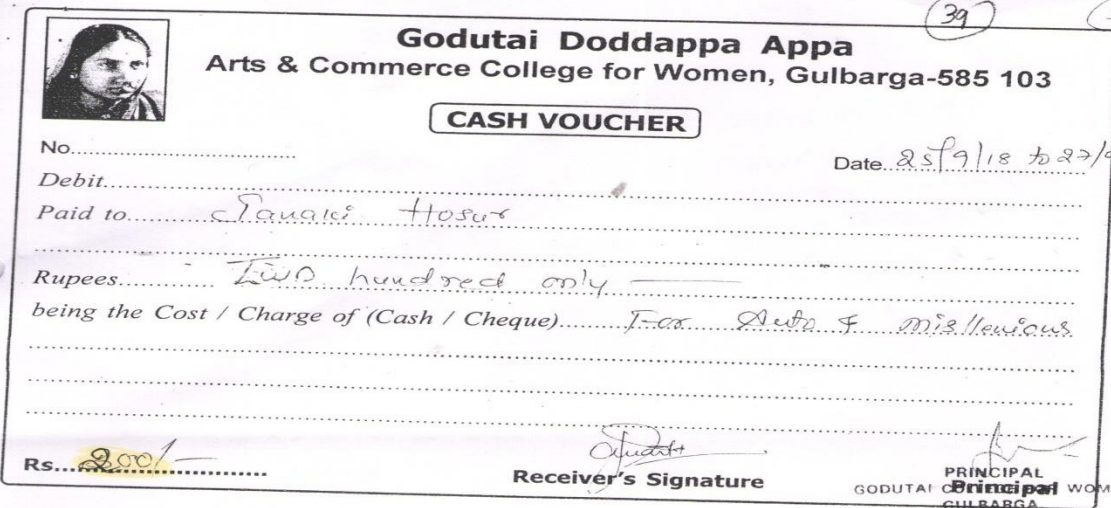 39
Godutai Doddappa Appa
Arts & Commerce College for Women, Gulbarga-585 103
CASH VOUCHER
No.
Date. 25/9/18 to 27/9
Debit
Paid to Janaki Hosur
Rupees Two hundred only
being the Cost / Charge of (Cash / Cheque) For Auto & misllenious
Rs. 200/-
Receiver's Signature
PRINCIPAL
Principal
GODUTAI COLLEGE FOR WOM
GULBARGA